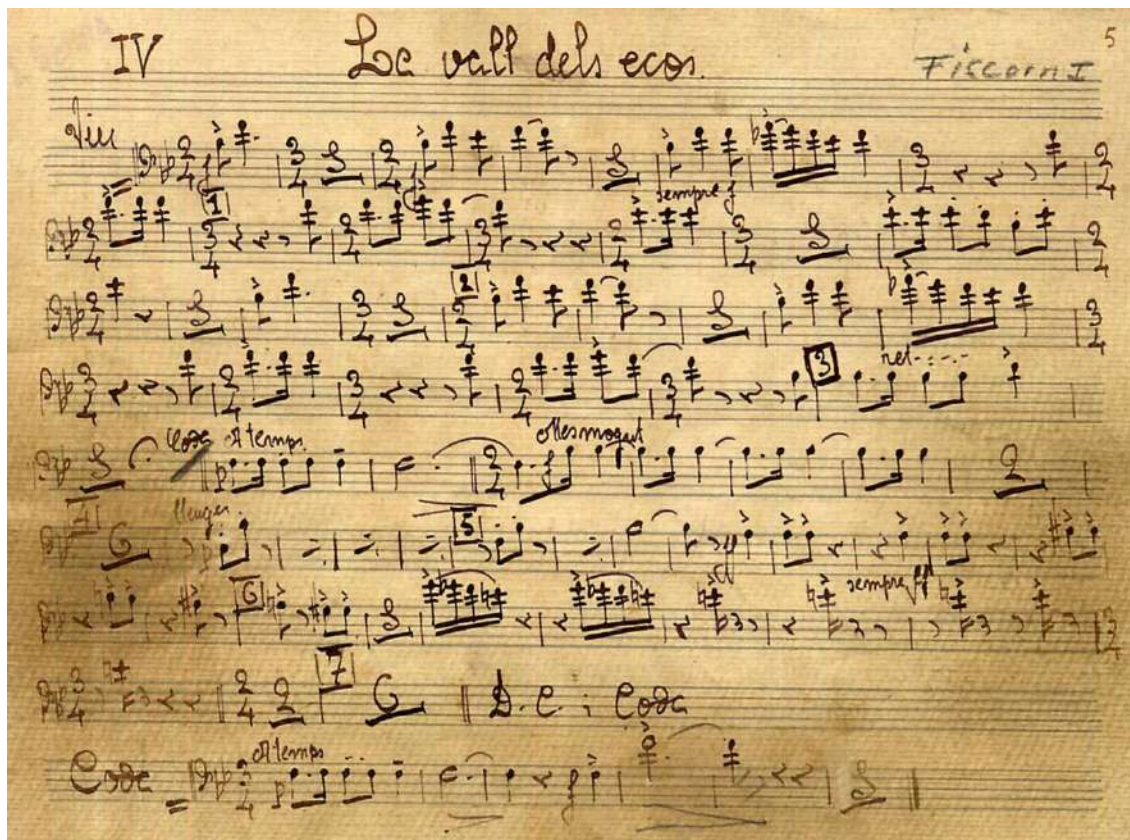 5
IV La vall dels ecos. Fiscorn I
Viu
sempre f
1
2
3 ret
Coda A temps. Mes mogut
4 lleuger 5
6 sempre ff
7 D. C. i Coda
A temps
Coda